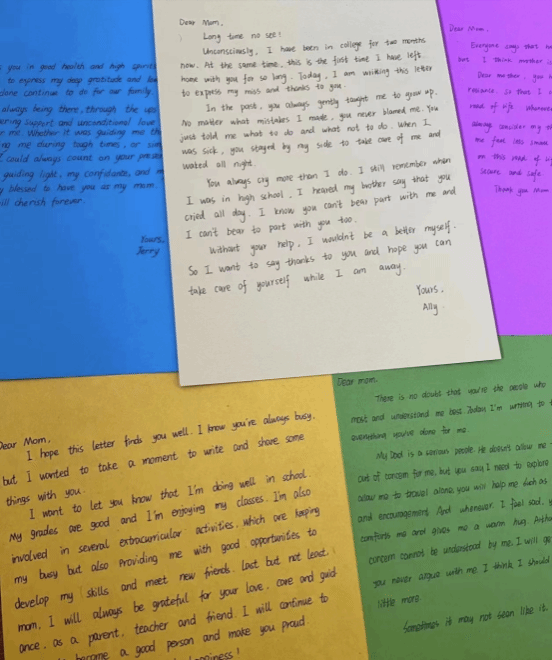 you in good health and high spirits
to express my deep gratitude and
done continue to do for our family.
always being there, through the ups
support and unconditional love
me. Whether it was guiding me
me during tough times, or
I could always count on your
guiding light, my confidante, and
blessed to have you as my mom.
cherish forever.
Yours,
Jerry
Dear Mom,
Long time no see!
Unconsciously, I have been in college for two months
now. At the same time, this is the first time I have left
home with you for so long. Today, I am writing this letter
to express my miss and thanks to you.
In the past, you always gently taught me to grow up.
No matter what mistakes I made, you never blamed me. You
just told me what to do and what not to do. When I
was sick, you stayed by my side to take care of me and
waited all night.
You always cry more than I do. I still remember when
I was in high school, I heared my brother say that you
cried all day. I know you can't bear part with me and
I can't bear to part with you too.
Without your help, I wouldn't be a better myself.
So I want to say thanks to you and hope you can
take care of yourself while I am away.
Yours,
Ally
Dear Mom,
Everyone says that
I think mother
Dear mother, you
so that I
road of life. Whenever
consider my
me feel
on this road of
secure and safe.
Thank you Mom
Dear Mom,
I hope this letter finds you well. I know you're always busy,
but I wanted to take a moment to write and share some
things with you.
I want to let you know that I'm doing well in school.
My grades are good and I'm enjoying my classes. I'm also
involved in several extracurricular activities, which are keeping
my busy but also providing me with good opportunities to
develop my skills and meet new friends. last but not least.
mom, I will always be grateful for your love, care and guid
ance, as a parent, teacher and friend. I will continue to
become a good person and make you proud.
Dear mom,
There is no doubt that you're the people who
most and understand me best. Today I'm writing to
everything you've done for me.
My Dad is a serious people. He doesn't allow me
out of concern for me, but you say I need to explore
allow me to travel alone, you will help me
and encouragement. And whenever I feel sad,
comforts me and gives me a warm hug.
concern cannot be understood by me, I will
you never argue with me. I think I should
little more.
Sometimes it may not seen like it.